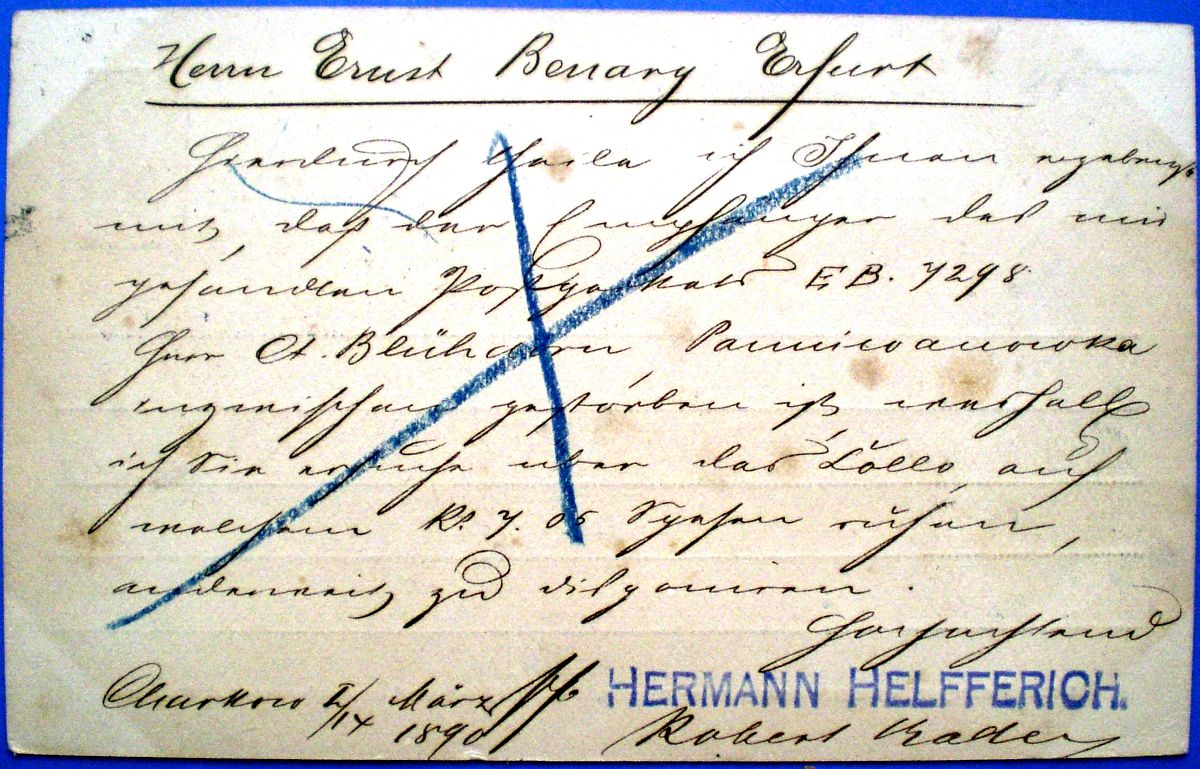 Herrn Ernst Benary Erfurt
Hierdurch theile ich Ihnen ergebenst
mit, daß der Empfänger des mir
gesandten Postpackets E B. 7298
Herr A. Blühdorn, Panniwanowka
inzwischen gestorben ist, weshalb
ich Sie ersuche über das Collo, auf
welchem Ro 7. 05 Spesen ruhen,
anderweitig zu disponiren.
Hochachtend
Charkow 2/14 März 1890
HERMANN HELFFERICH.
Robert